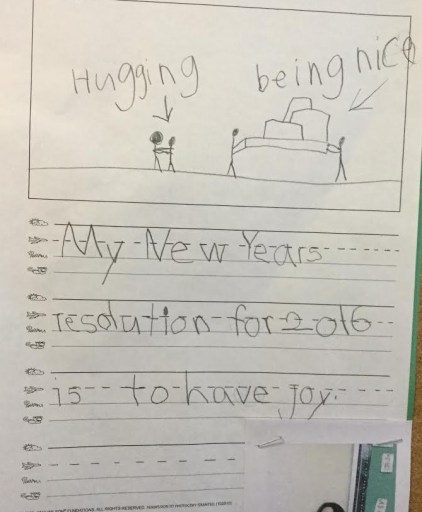 Hugging
being nice
My New Years
resolution for 2016
is to have joy.